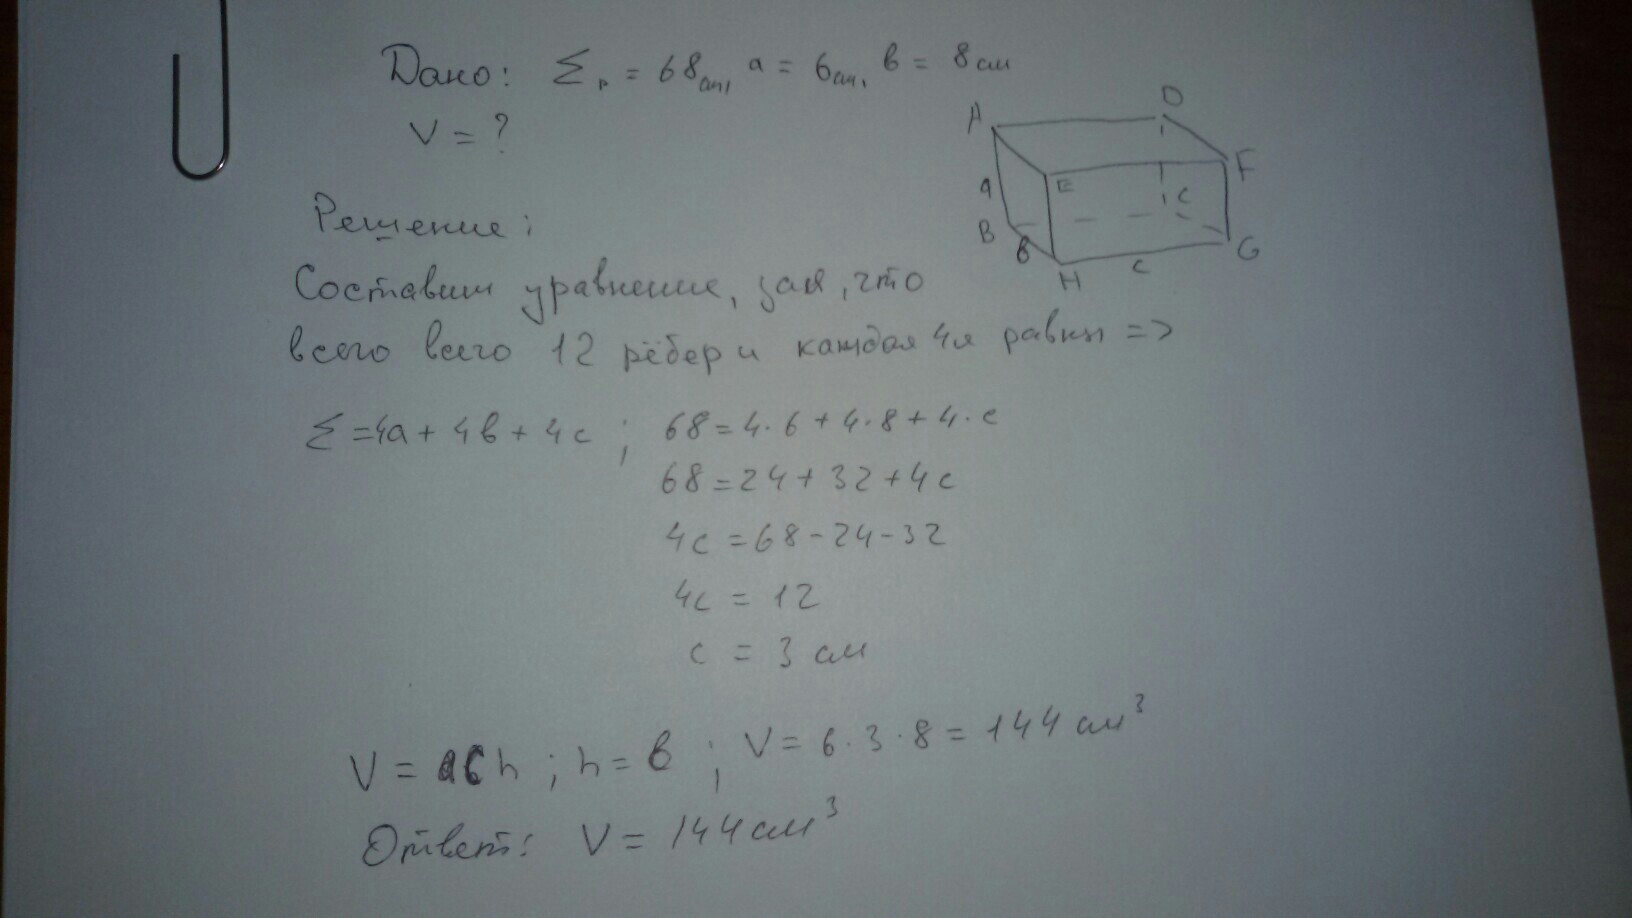 Дано: Σр = 68см, а = 6см, в = 8см
V = ?
A D
E F
а C
B в H c G
Решение:
Составим уравнение, зная, что
всего всего 12 рёбер и каждая 4я равны =>
Σ=4а + 4в + 4с ; 68=4·6+4·8+4·с
68=24+32+4с
4с =68-24-32
4с = 12
с = 3 см
V = асh ; h = в ; V = 6·3·8 = 144 см³
Ответ: V = 144см³